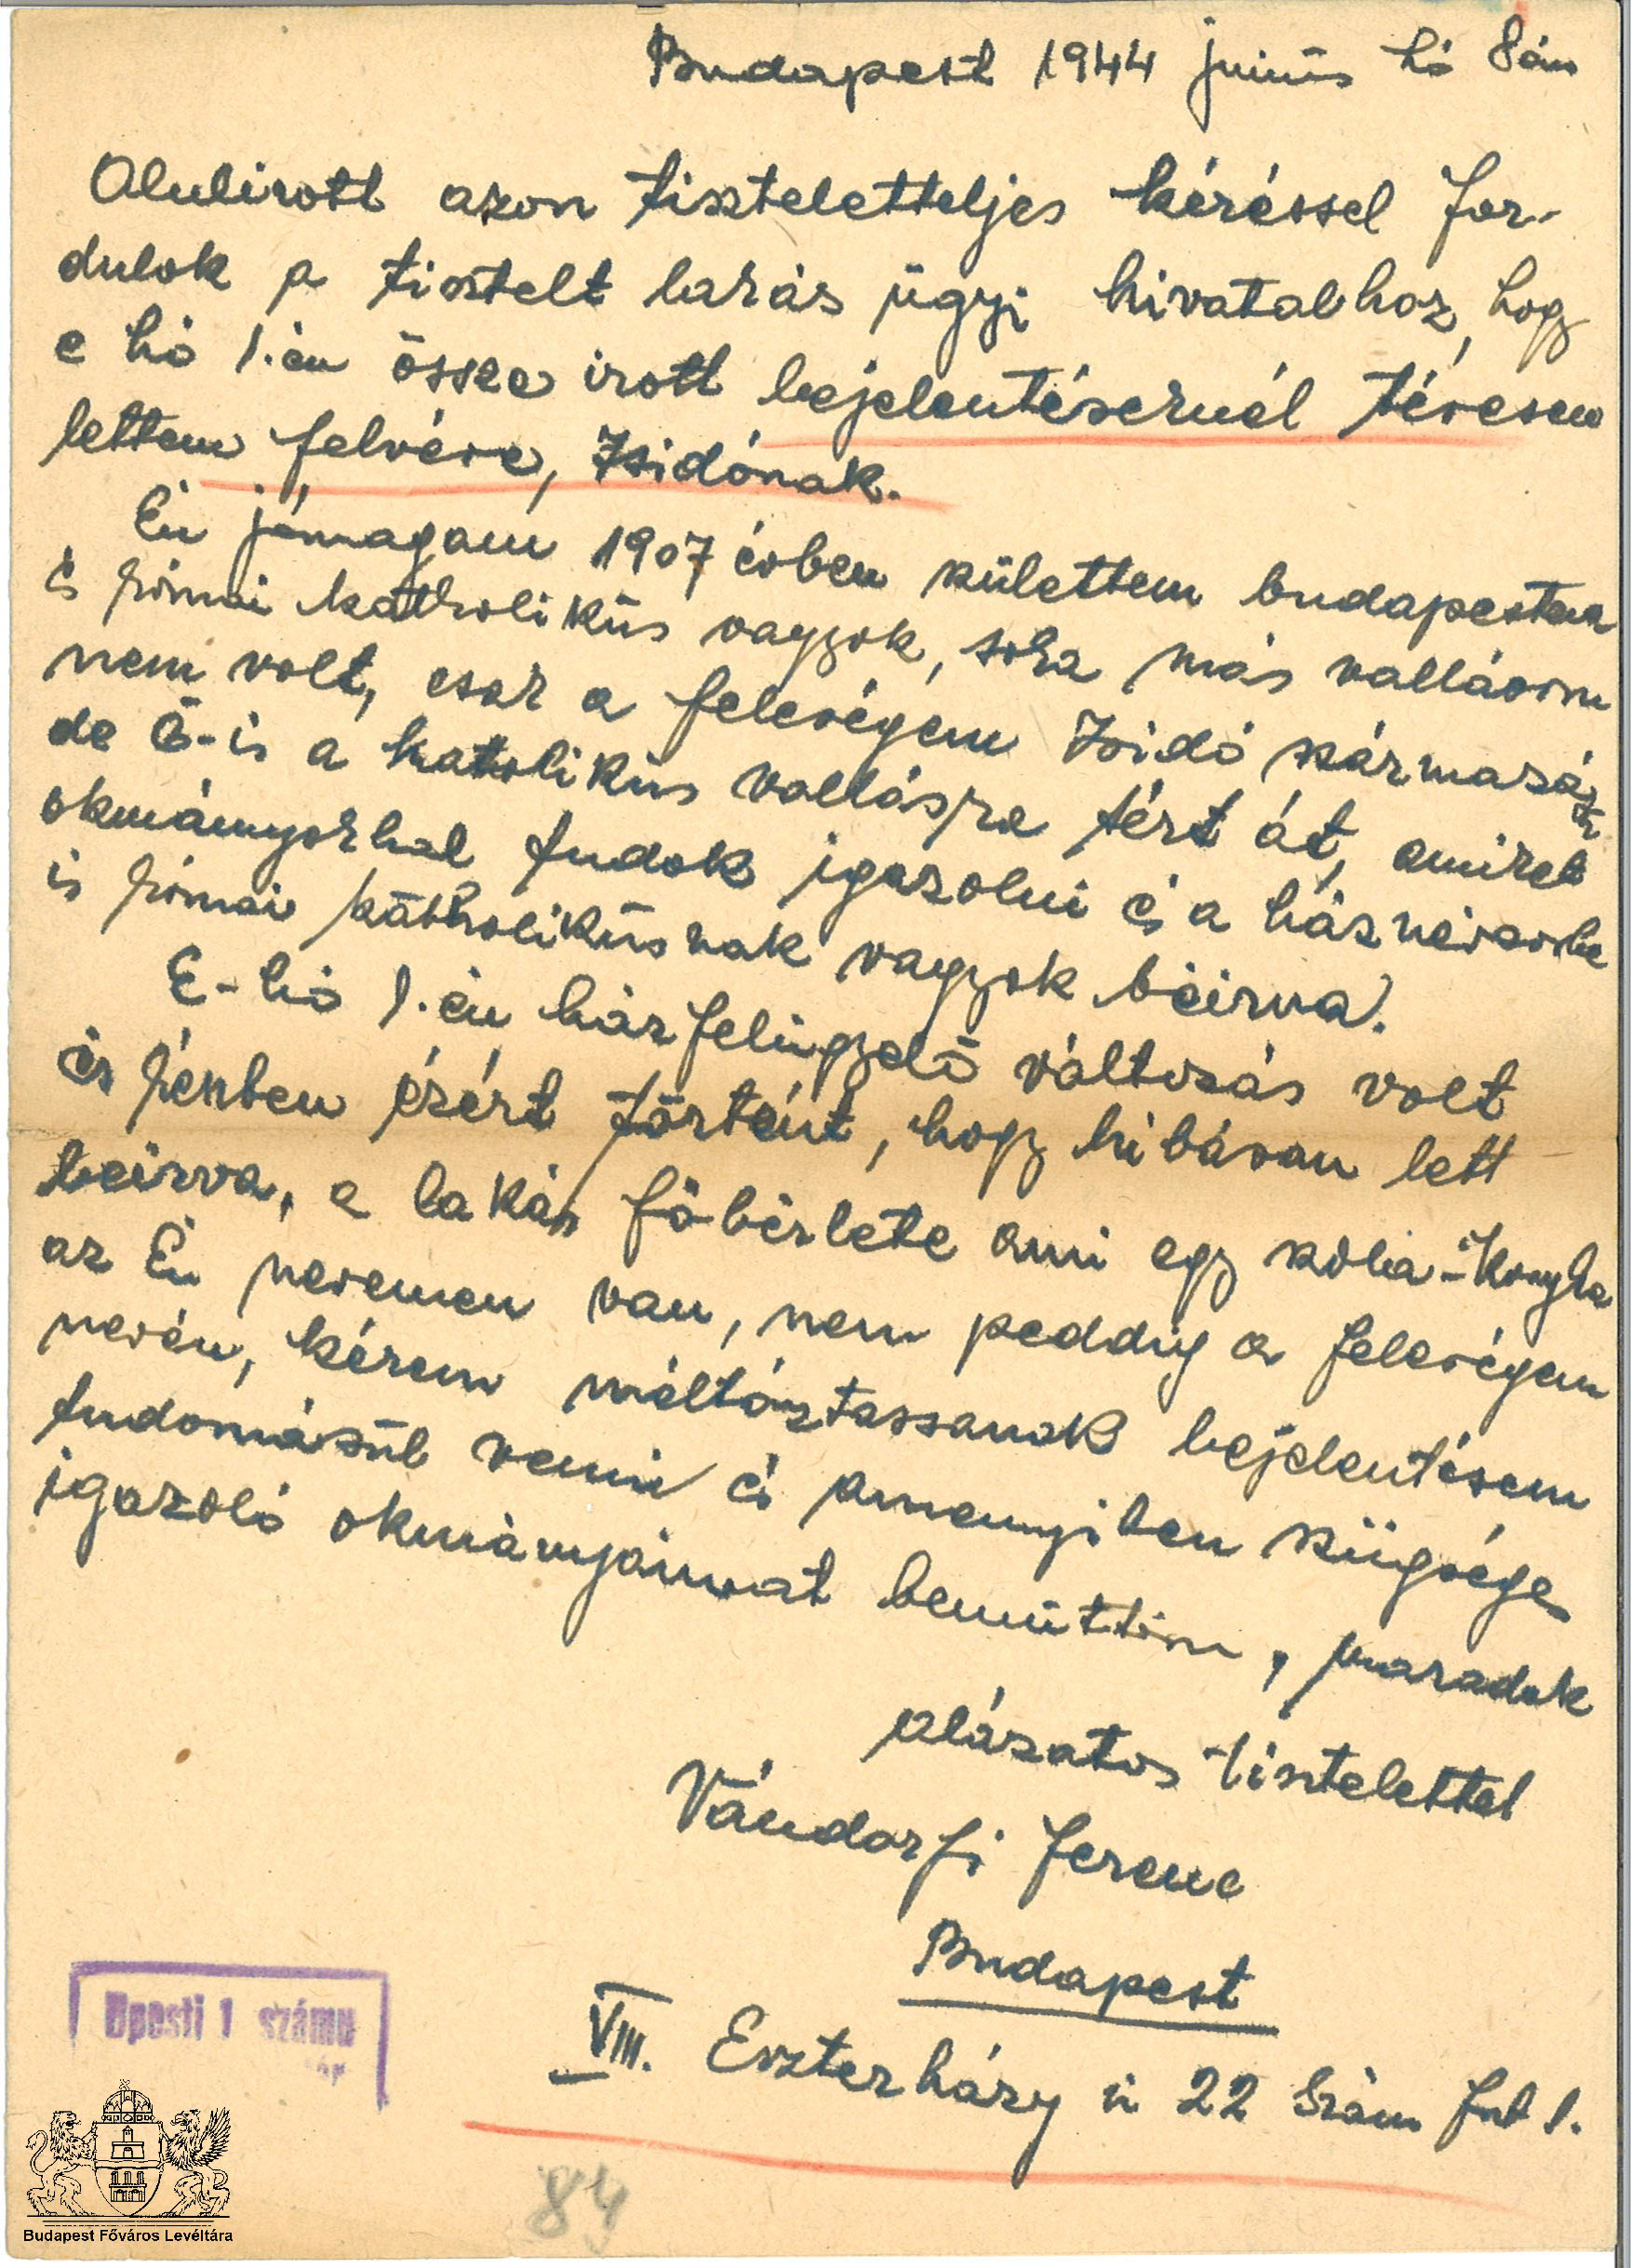 Budapest 1944 junius hó 8án
Alulirott azon tiszteletteljes kéréssel for-
dulok a tisztelt lakás ügyi hivatalhoz, hogy
e hó 1.én össze irott bejelentésernél tévesen
lettem felvéve, Zsidónak.
Én jómagam 1907 évben születtem budapesten
és római katholikús vagyok, soha más vallásom
nem volt, csak a feleségem Zsidó származás
de Ő-is a katolikús vallásra tért át, amiket
okmányokkal tudok igazolni és a háznévsorba
is római katholikúsnak vagyok béirva.
E-hó 1.én házfelügyelő változás volt
és részben ézért történt, hogy hibásan lett
beirva, a lakás főbérlete ami egy szoba-konyha
az Én nevemen van, nem peddig a feleségem
nevén, kérem méltóztassanak bejelentésem
tudomásúl venni és amennyiben szügséges
igazoló okmányaimat bemútatom, maradok
alázatos tisztelettel
Vándorfi Ferenc
Budapest
VIII. Eszterházy ú 22 Szám fst 1.
Bpesti 1 számu
84
Budapest Főváros Levéltára